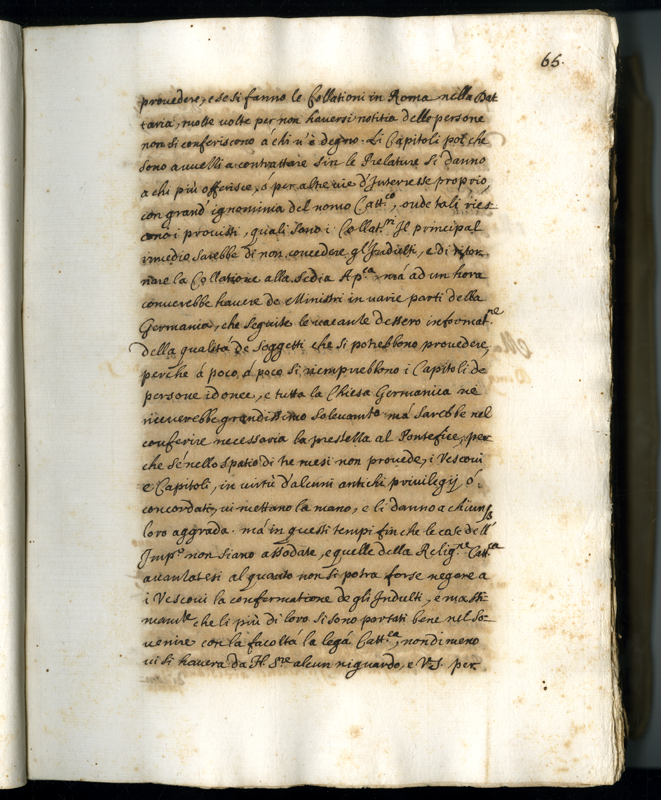 65.
provedere, e se si fanno le Collationi in Roma nella Dat
taria, molte volte per non haversi notitia delle persone
non si conferiscono á chi n'è degno. Li Capitoli poi che
sono avvezzi a contrattare sin le Prelature si danno
a chi più offerisce, ó per altre vie d'Interesse proprio,
con grand'ignominia del nome Catt.co, onde tali ries-
cono i provisti, quali sono i Collat.ri Il principal
rimedio sarebbe di non concedere gl'Indulti, e di ritor-
nare la Collatione alla Sedia Ap.ca má ad un hora
converebbe havere de Ministri in varie parti della
Germania, che seguite le vacante dessero informat.ne
della qualitá de Soggetti che si potrebbono provedere,
perche á poco, á poco si riempirebbono i Capitoli de
persone idonee, e tutta la Chiesa Germanica ne
riceverebbe grandissimo solevam.to má sarebbe nel
conferire necessaria la prestezza al Pontefice, per
che se nello spatio di tre mesi non provede, i Vescovi
e Capitoli, in virtù d'alcuni antichi privilegij ó
concordati, vi mettano la mano, e li danno a chiunq
loro aggrada. má in questi tempi fin che le cose dell'
Imp.o non siano assodate, e quelle della Relig.ne Catt.ca
avantatesi al quanto non si potra forse negare a
i Vescovi la confermatione de gli Indulti, e massi-
mam.te che li più di loro si sono portati bene nel so-
venire con la facoltá la lega Catt.ca, nondimeno
vi si havera da N. S.re alcun riguardo, e V.S. per